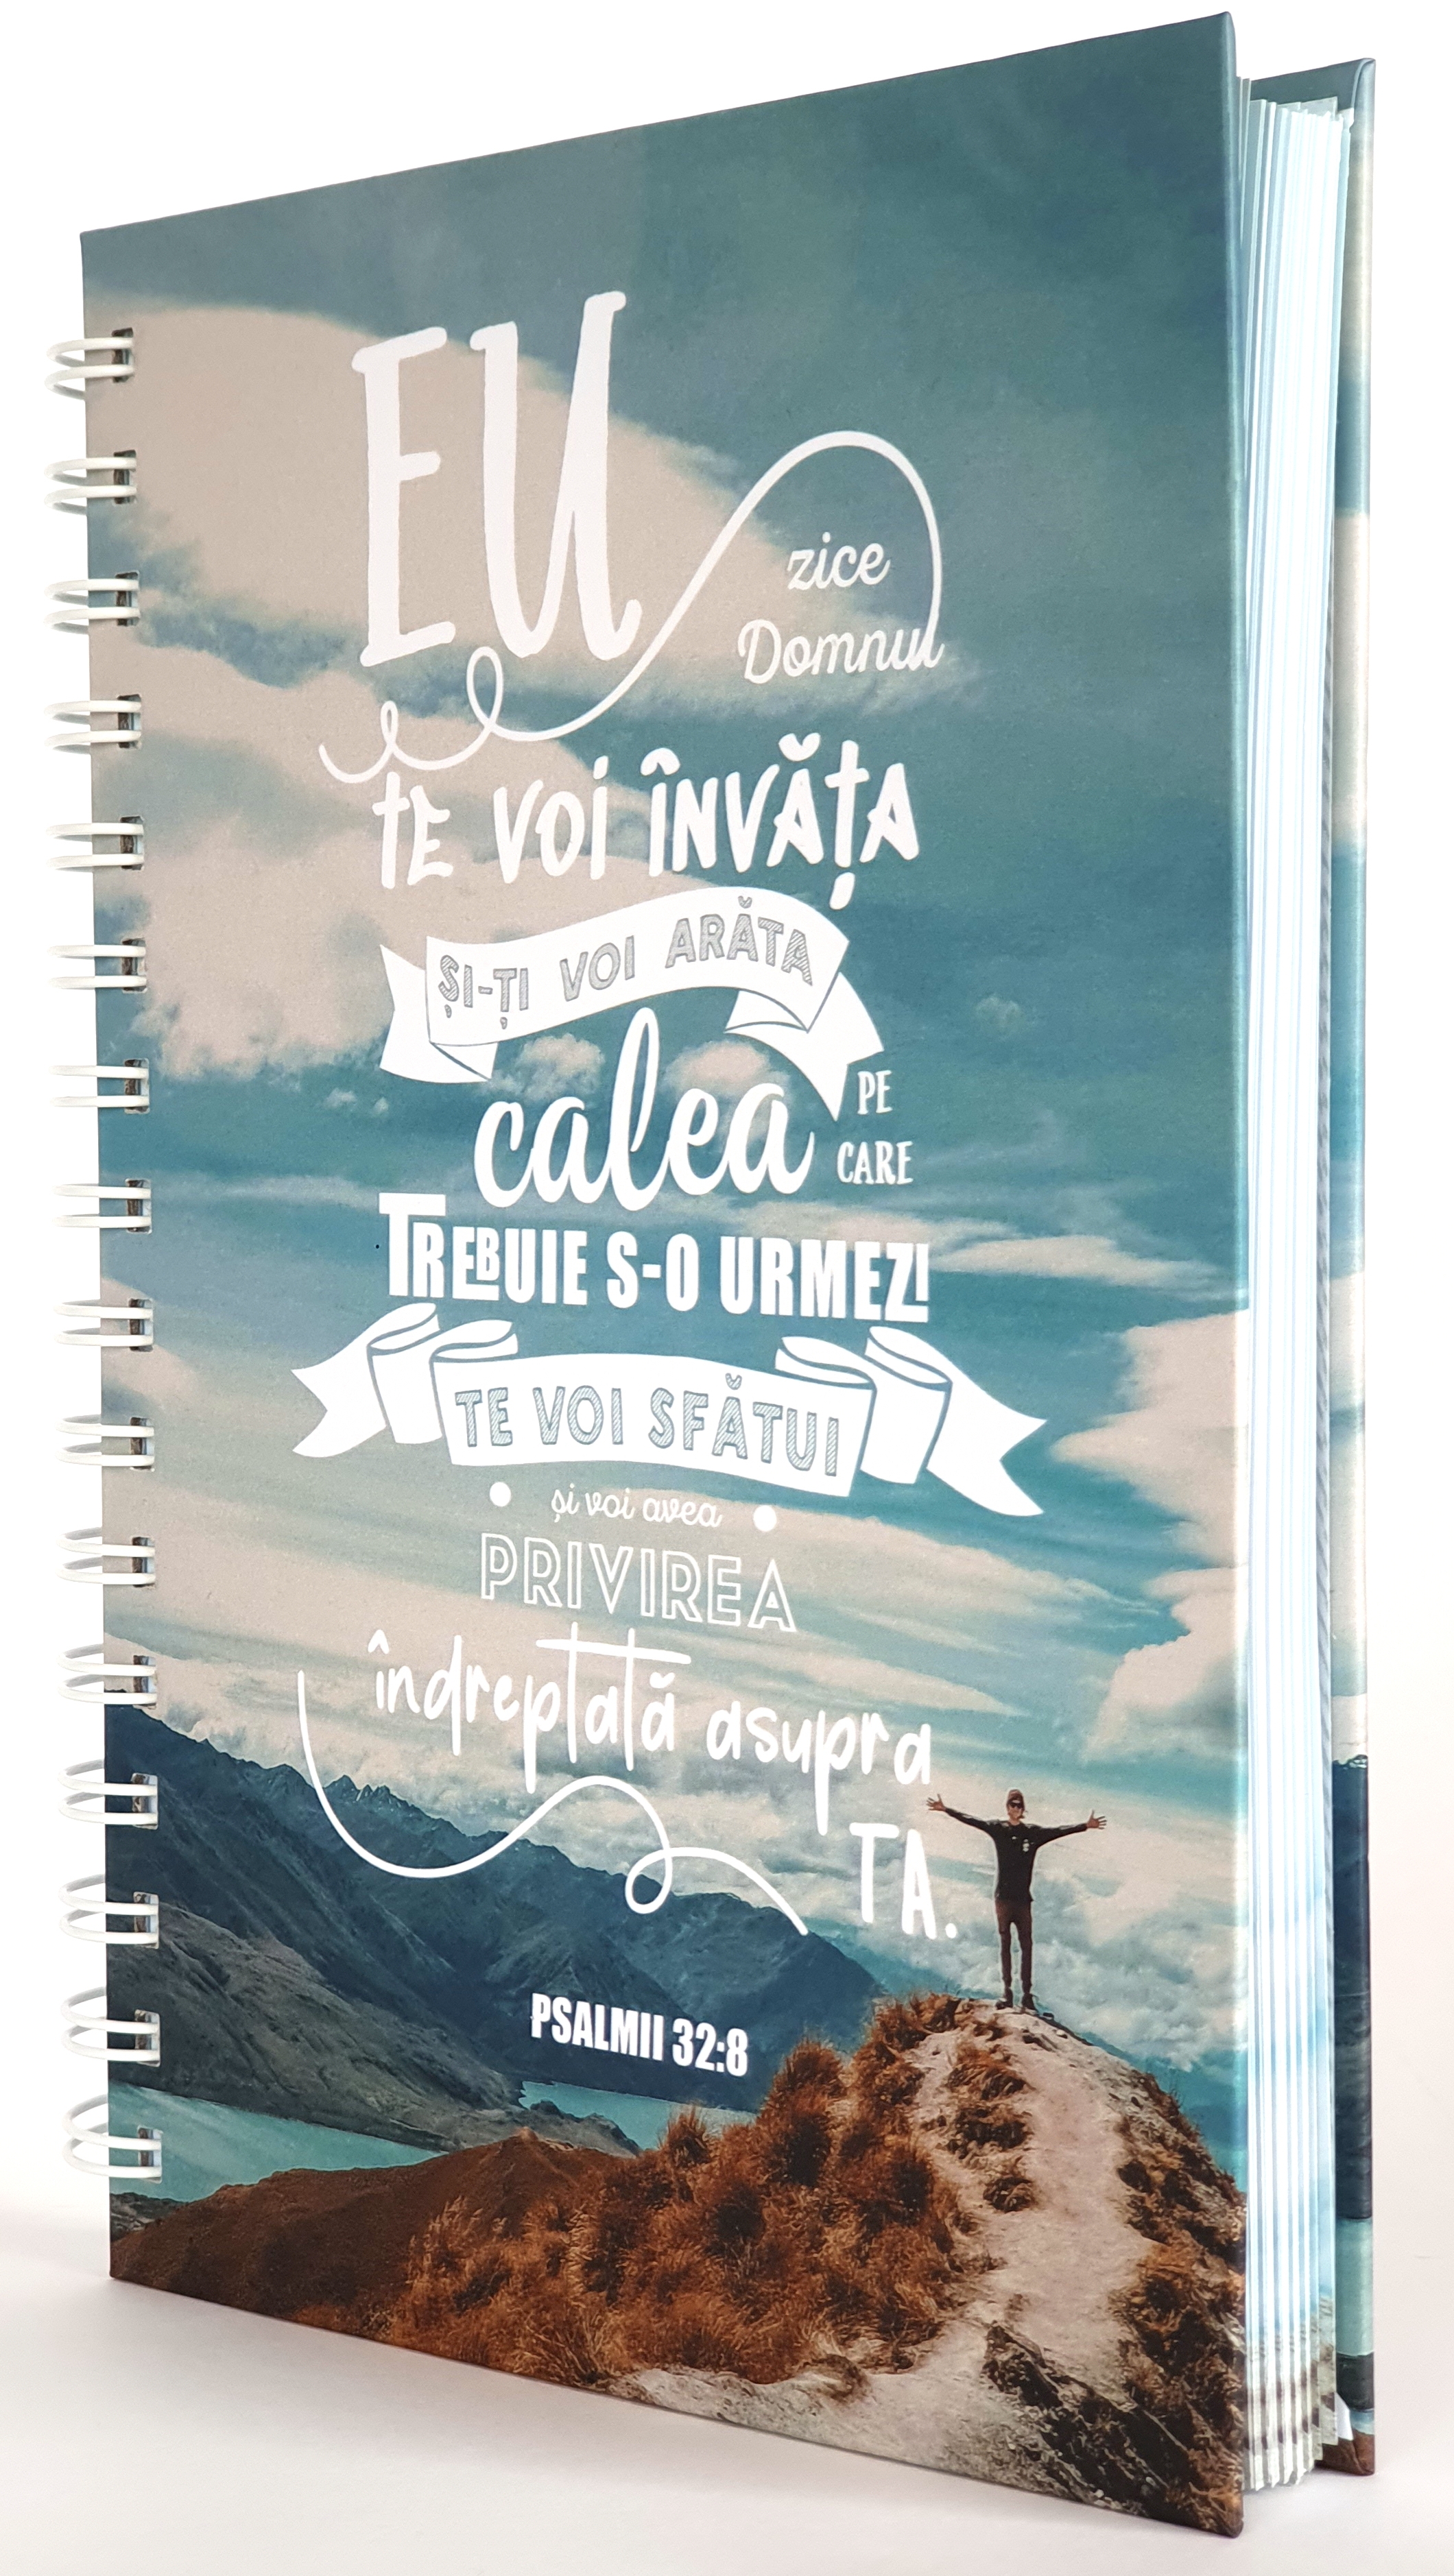 EU
zice
Domnul
tE VOi ÎNVĂțA
ȘI-ȚI VOI ARĂTA
calea
PE
CARE
TREBUIE S-O URMEZI
TE VOI SFĂTUI
și voi avea
PRIVIREA
îndreptată asupra
TA.
PSALMII 32:8